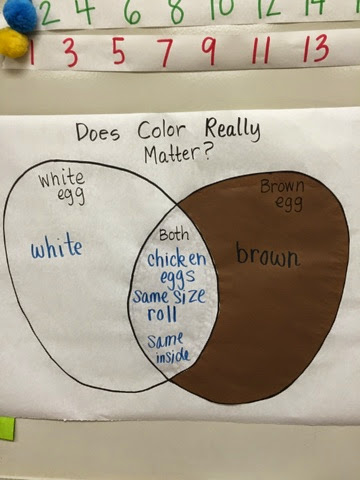 2 4 6 8 10 12 14
1 3 5 7 9 11 13
Does Color Really
Matter?
White
egg
white
Both
chicken
eggs
same size
roll
same
inside
Brown
egg
brown